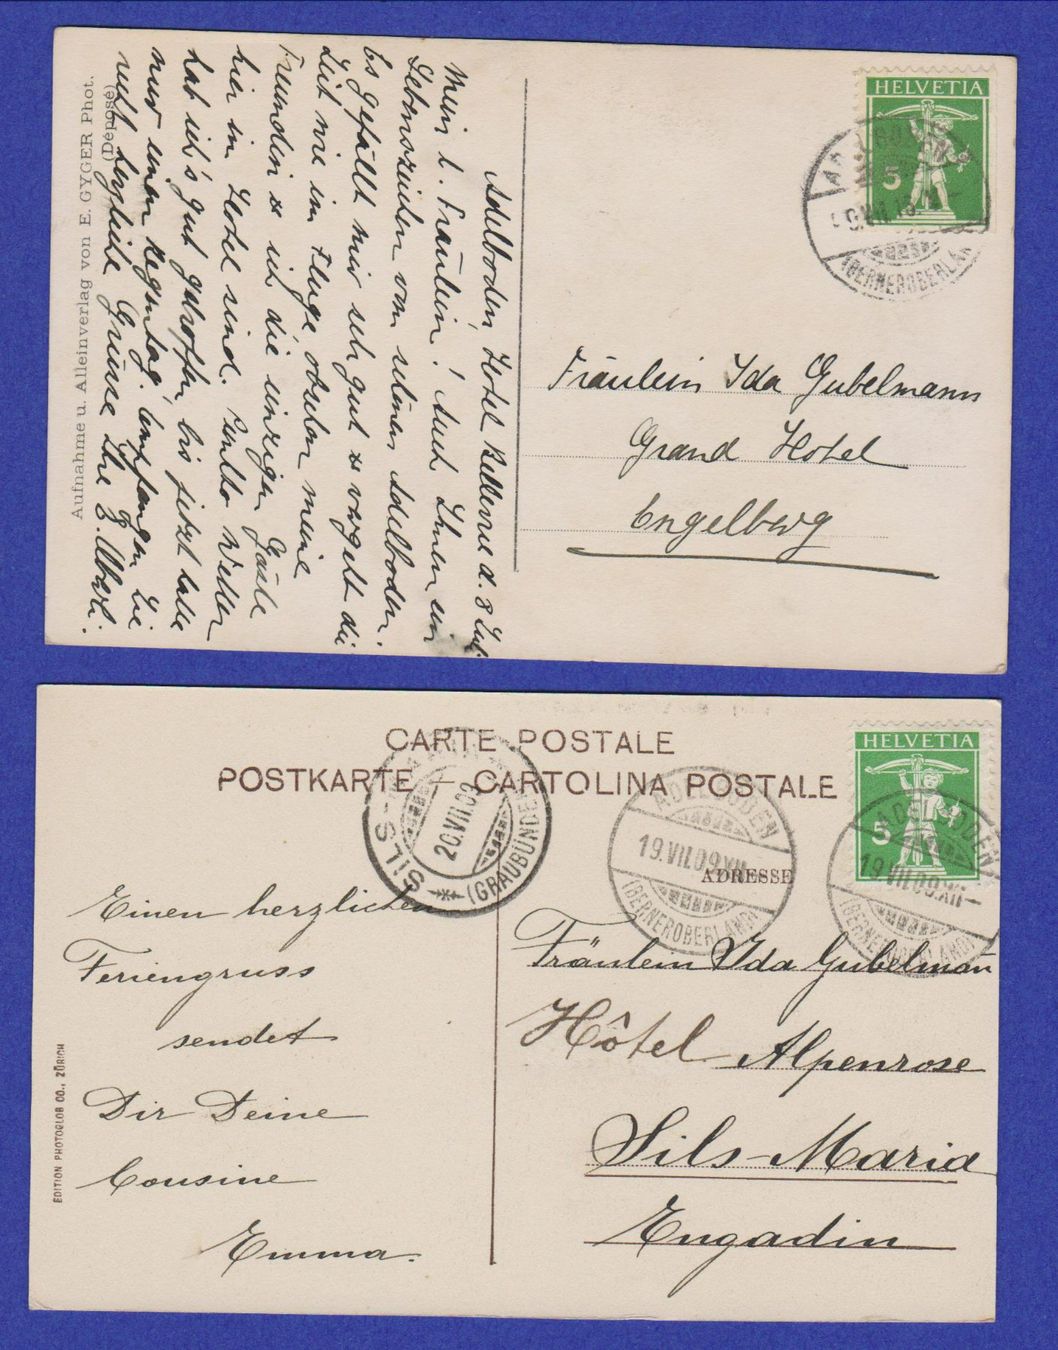 Adelboden, Hotel Bellevue d. 8 Juli.
Mein l. Fräulein! Auch Ihnen ein
Lebenszeichen von schönen Adelboden.
Es gefällt mir sehr gut & vergeht die
Zeit wie im Fluge obschon meine
Freundin & ich die einzigen Gäste
hier in Hotel sind. Wetter
hab ich's gut getroffen, bis jetzt hatte
nur einen Regentag. Empfangen Sie
recht herzliche Grüsse Ihre
Aufnahme u. Alleinverlag von E. GYGER Phot.
(Déposé)
HELVETIA
5
ADELBODEN
(BERNEROBERLAND)
Fräulein Ida Gubelmann
Grand Hotel
Engelberg
CARTE POSTALE
POSTKARTE — CARTOLINA POSTALE
SILS
20.VII.09
(GRAUBÜNDEN)
ADELBODEN
19.VII.09.XII—
(BERNEROBERLAND)
HELVETIA
5
ADELBODEN
19.VII.09.XII—
(BERNEROBERLAND)
ADRESSE
Fräulein Ida Gubelmann
Hôtel Alpenrose
Sils-Maria
Engadin
Einen herzlichen
Feriengruss
sendet
Dir Deine
Cousine
Emma.
EDITION PHOTOGLOB CO., ZÜRICH